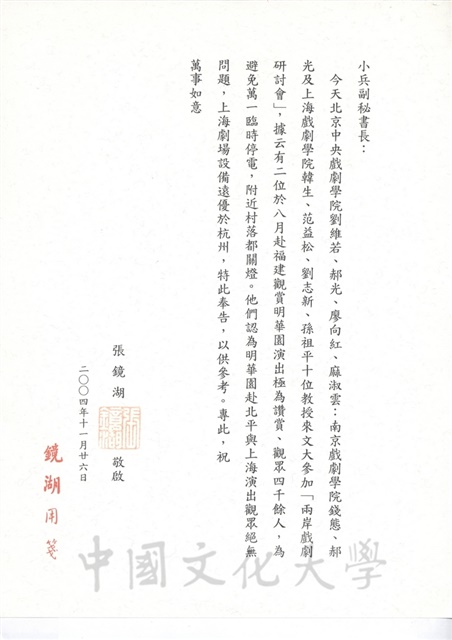 小兵副秘書長：
今天北京中央戲劇學院劉維若、郝光、廖向紅、麻淑雲：南京戲劇學院錢態、郝
光及上海戲劇學院韓生、范益松、劉志新、孫祖平十位教授來文大參加「兩岸戲劇
研討會」，據云有二位於八月赴福建觀賞明華園演出極為讚賞、觀眾四千餘人，為
避免萬一臨時停電，附近村落都關燈。他們認為明華園赴北平與上海演出觀眾絕無
問題，上海劇場設備遠優於杭州，特此奉告，以供參考。專此，祝
萬事如意
張鏡湖 敬啟
二〇〇四年十一月廿六日
鏡湖用箋
中國文化大學